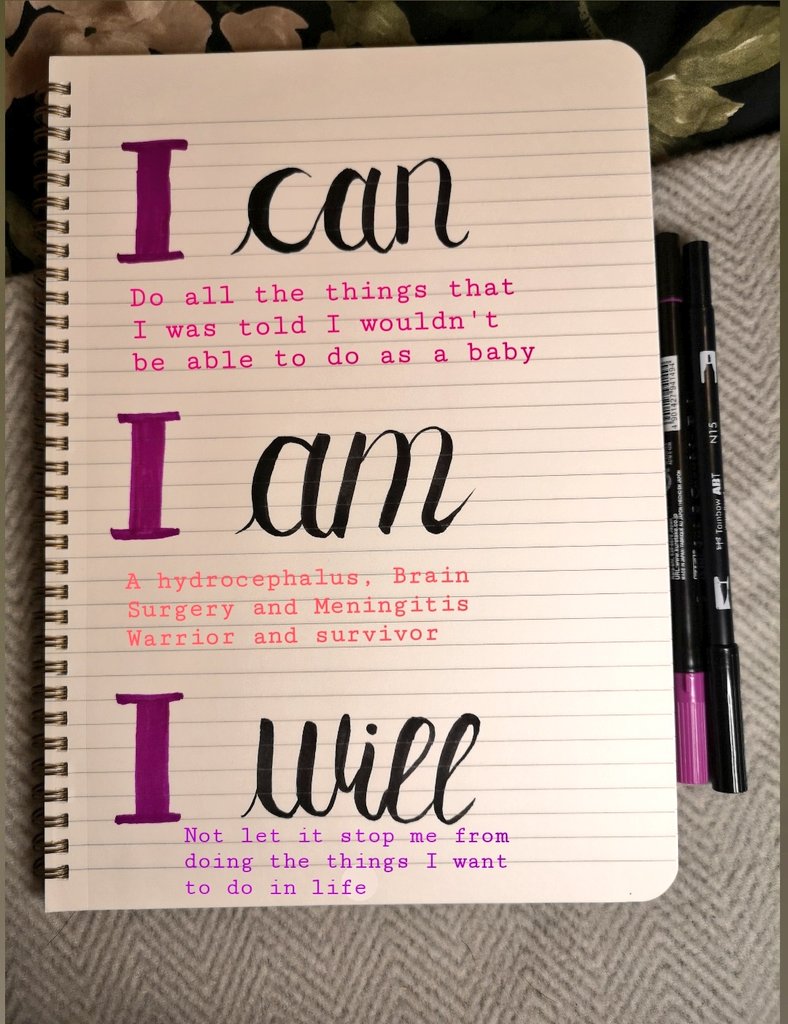 I can
Do all the things that
I was told I wouldn't
be able to do as a baby
I am
A hydrocephalus, Brain
Surgery and Meningitis
Warrior and survivor
I will
Not let it stop me from
doing the things I want
to do in life
4 901427 941494
Tombow ABT
N15